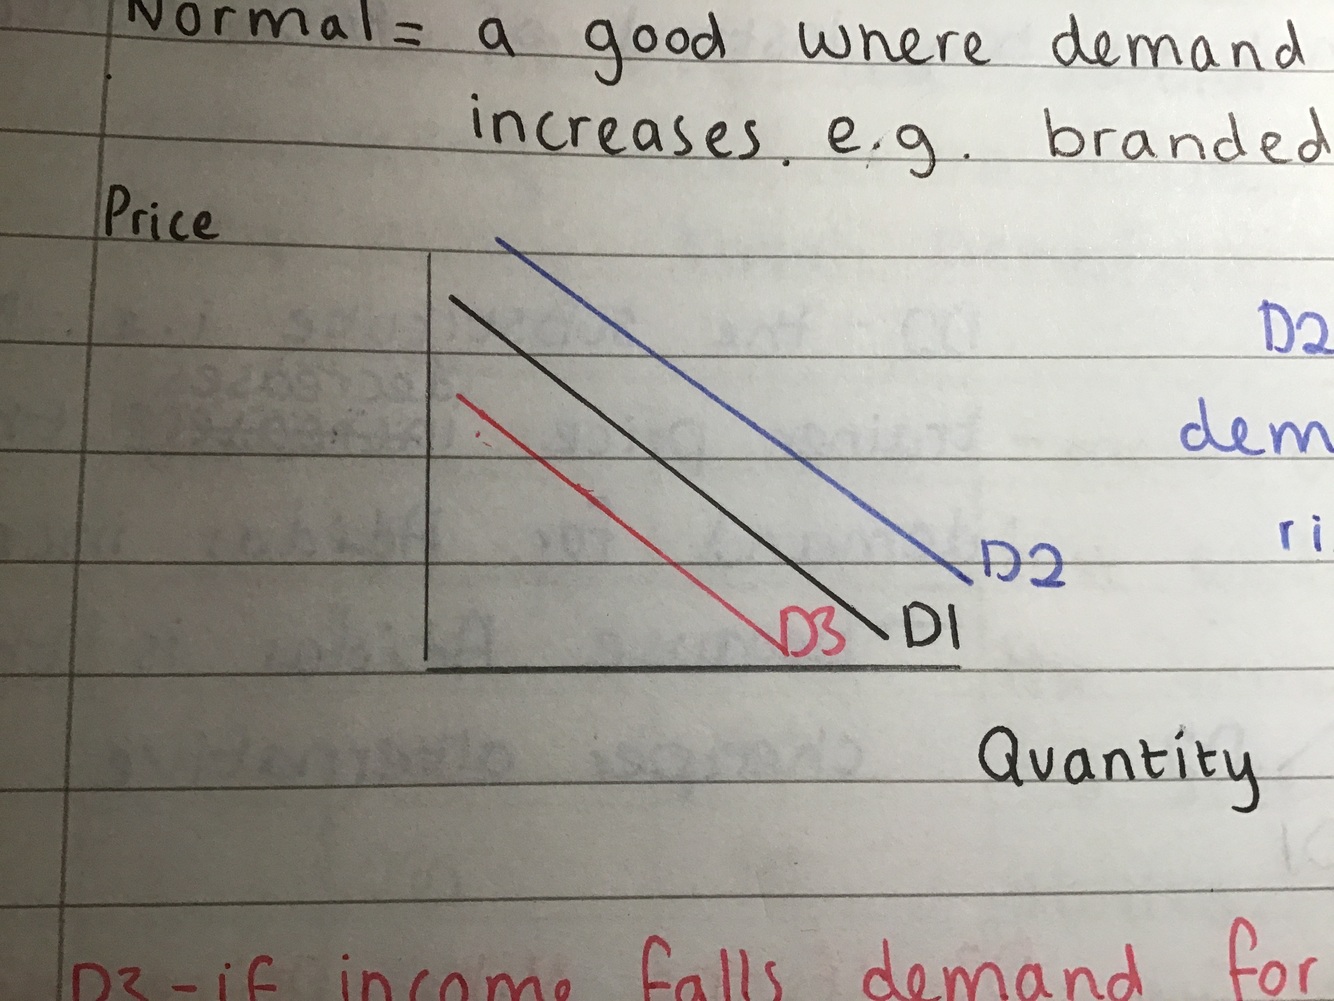 Normal = a good where demand
increases. e.g. branded
Price
D2
dem
ri
D2
D3 D1
Quantity
D3 - if income falls demand for